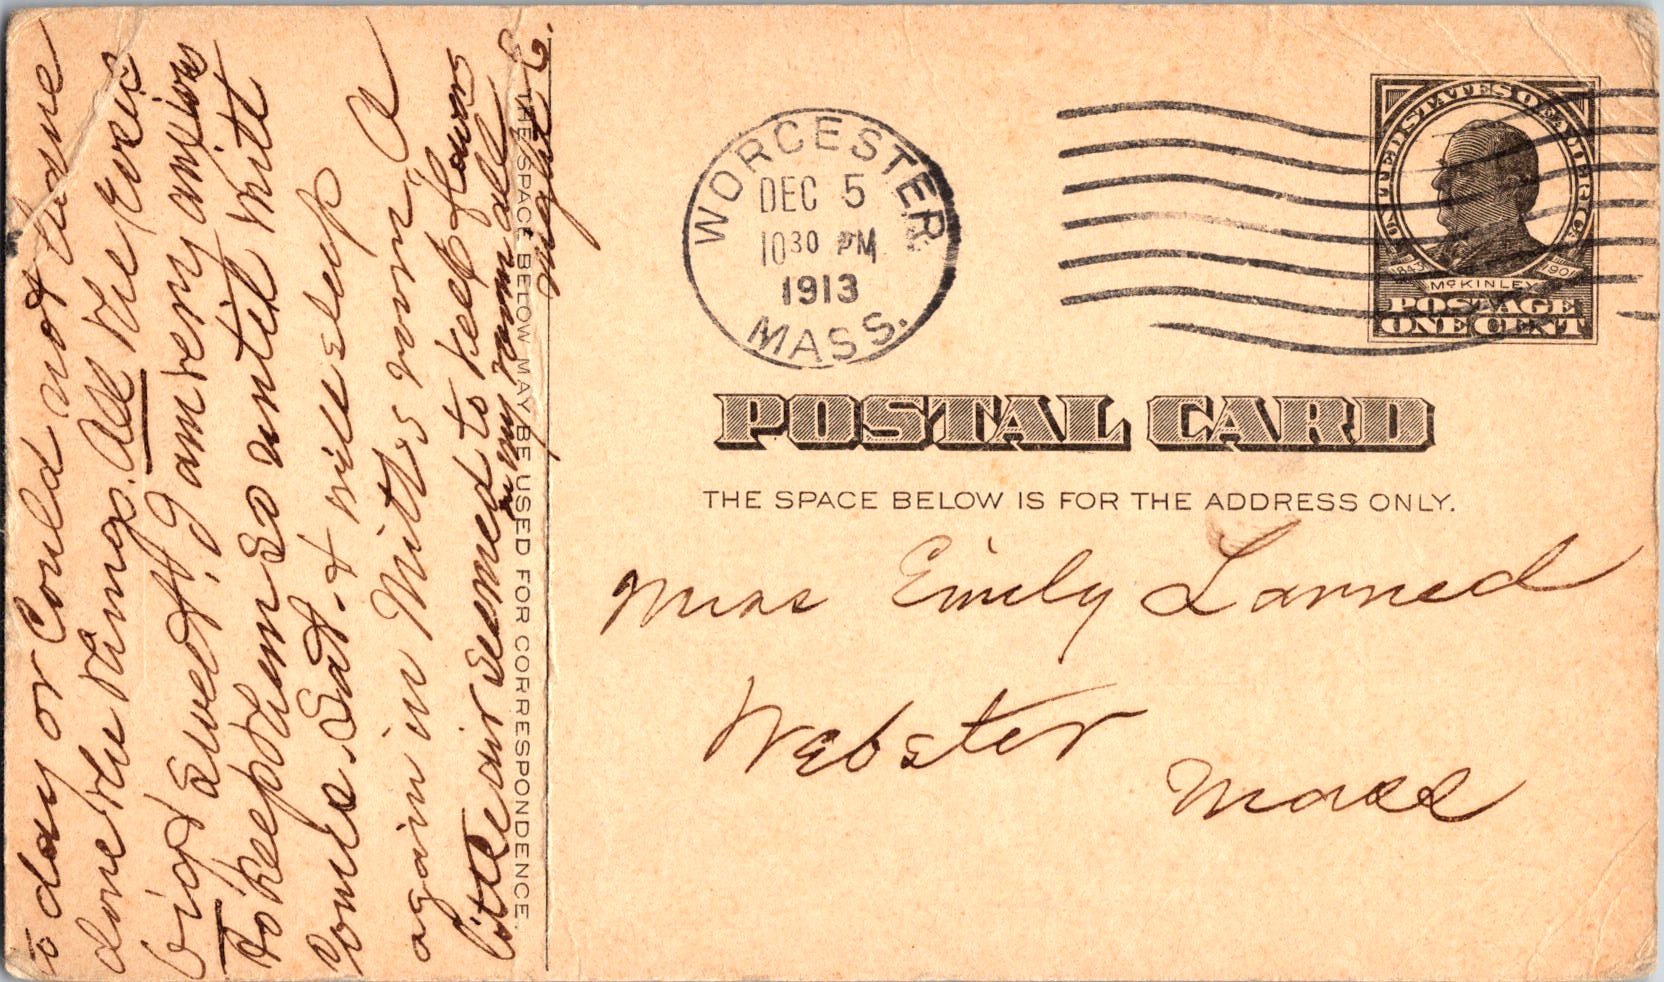 WORCESTER
DEC 5
10 30 PM
1913
MASS.
UNITED STATES OF AMERICA
1843 1901
McKINLEY
POSTAGE
ONE CENT
POSTAL CARD
THE SPACE BELOW IS FOR THE ADDRESS ONLY.
Miss Emily Larned
Webster
Mass
THE SPACE BELOW MAY BE USED FOR CORRESPONDENCE.
to day or Could not have
done the things. All the
violet sweet! I am very anxious
to keep them so until Mitt
comes Sat. & will sleep
again in Mitt's room. A
little air seemed to keep flowers
in my room all
night